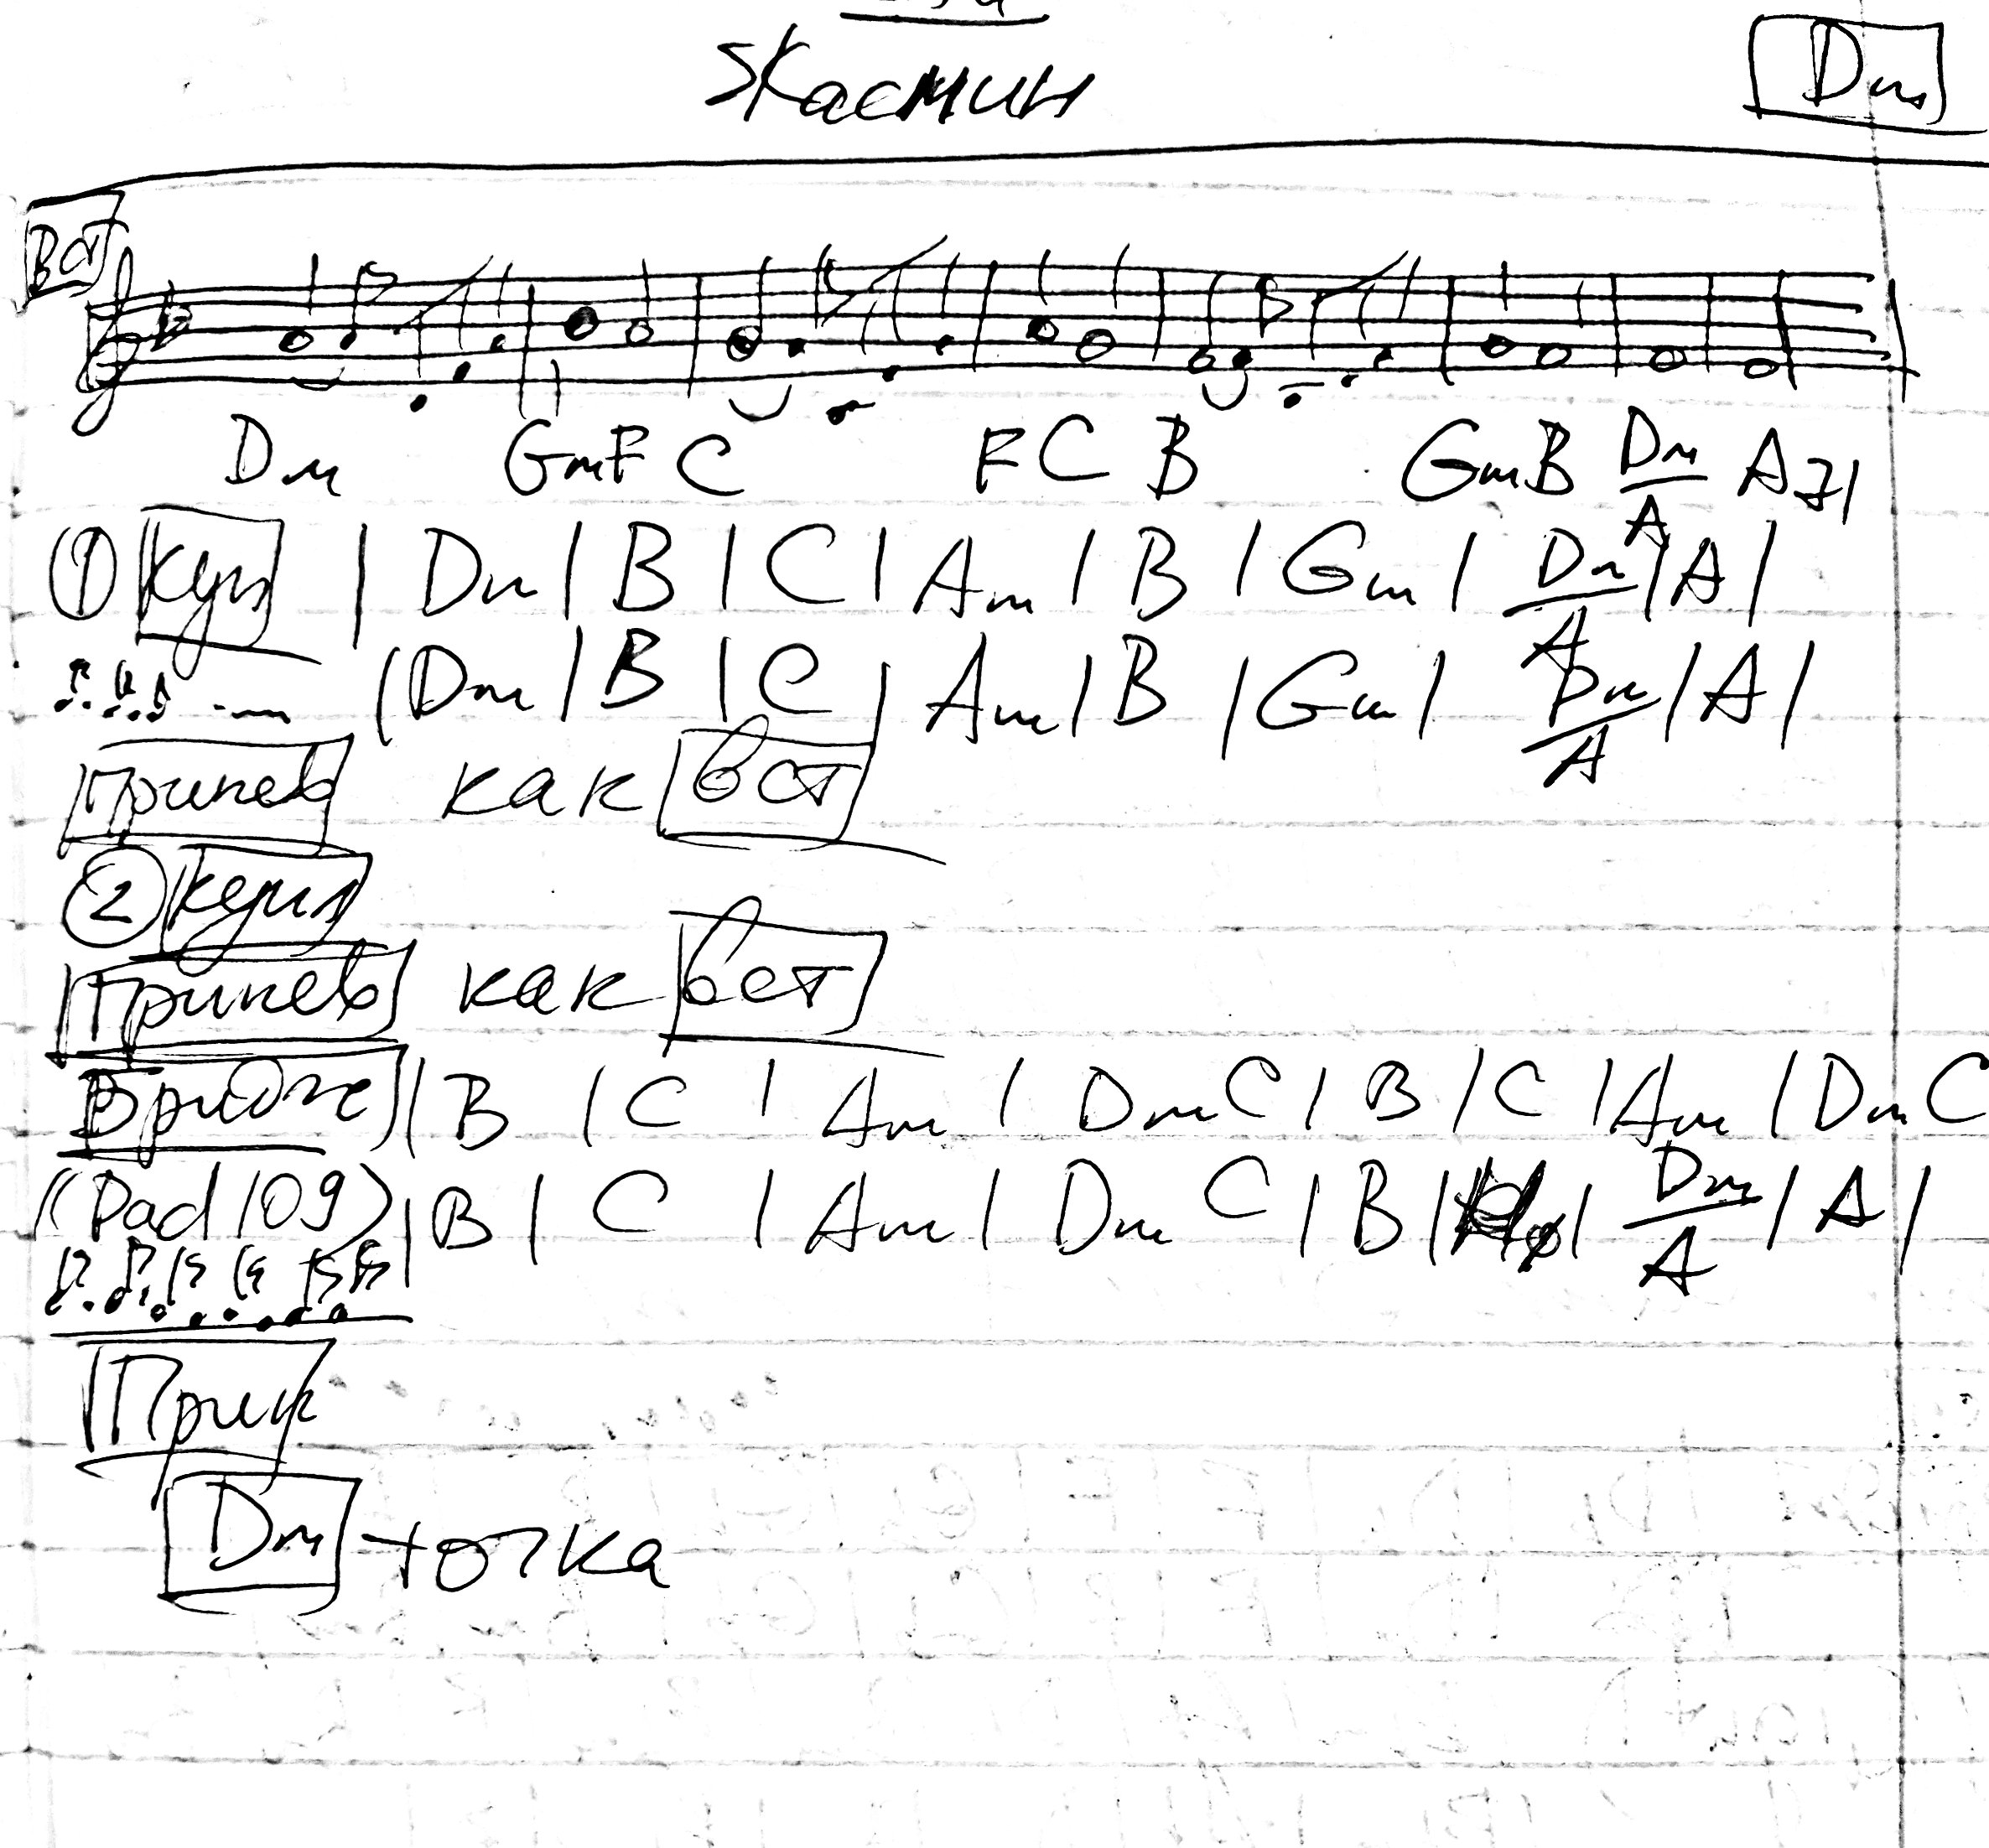 Жасмин
Dm
Вст
Dm GmF C F C B GmB Dm/A A7|
① Куп | Dm | B | C | Am | B | Gm | Dm/A | A |
| Dm | B | C | Am | B | Gm | Dm/A | A |
Припев как вст
② Купл
Припев как вст
Бридж | B | C | Am | Dm C | B | C | Am | Dm C
(Pad 109) | B | C | Am | Dm C | B | | Dm/A | A |
Прип
Dm точка